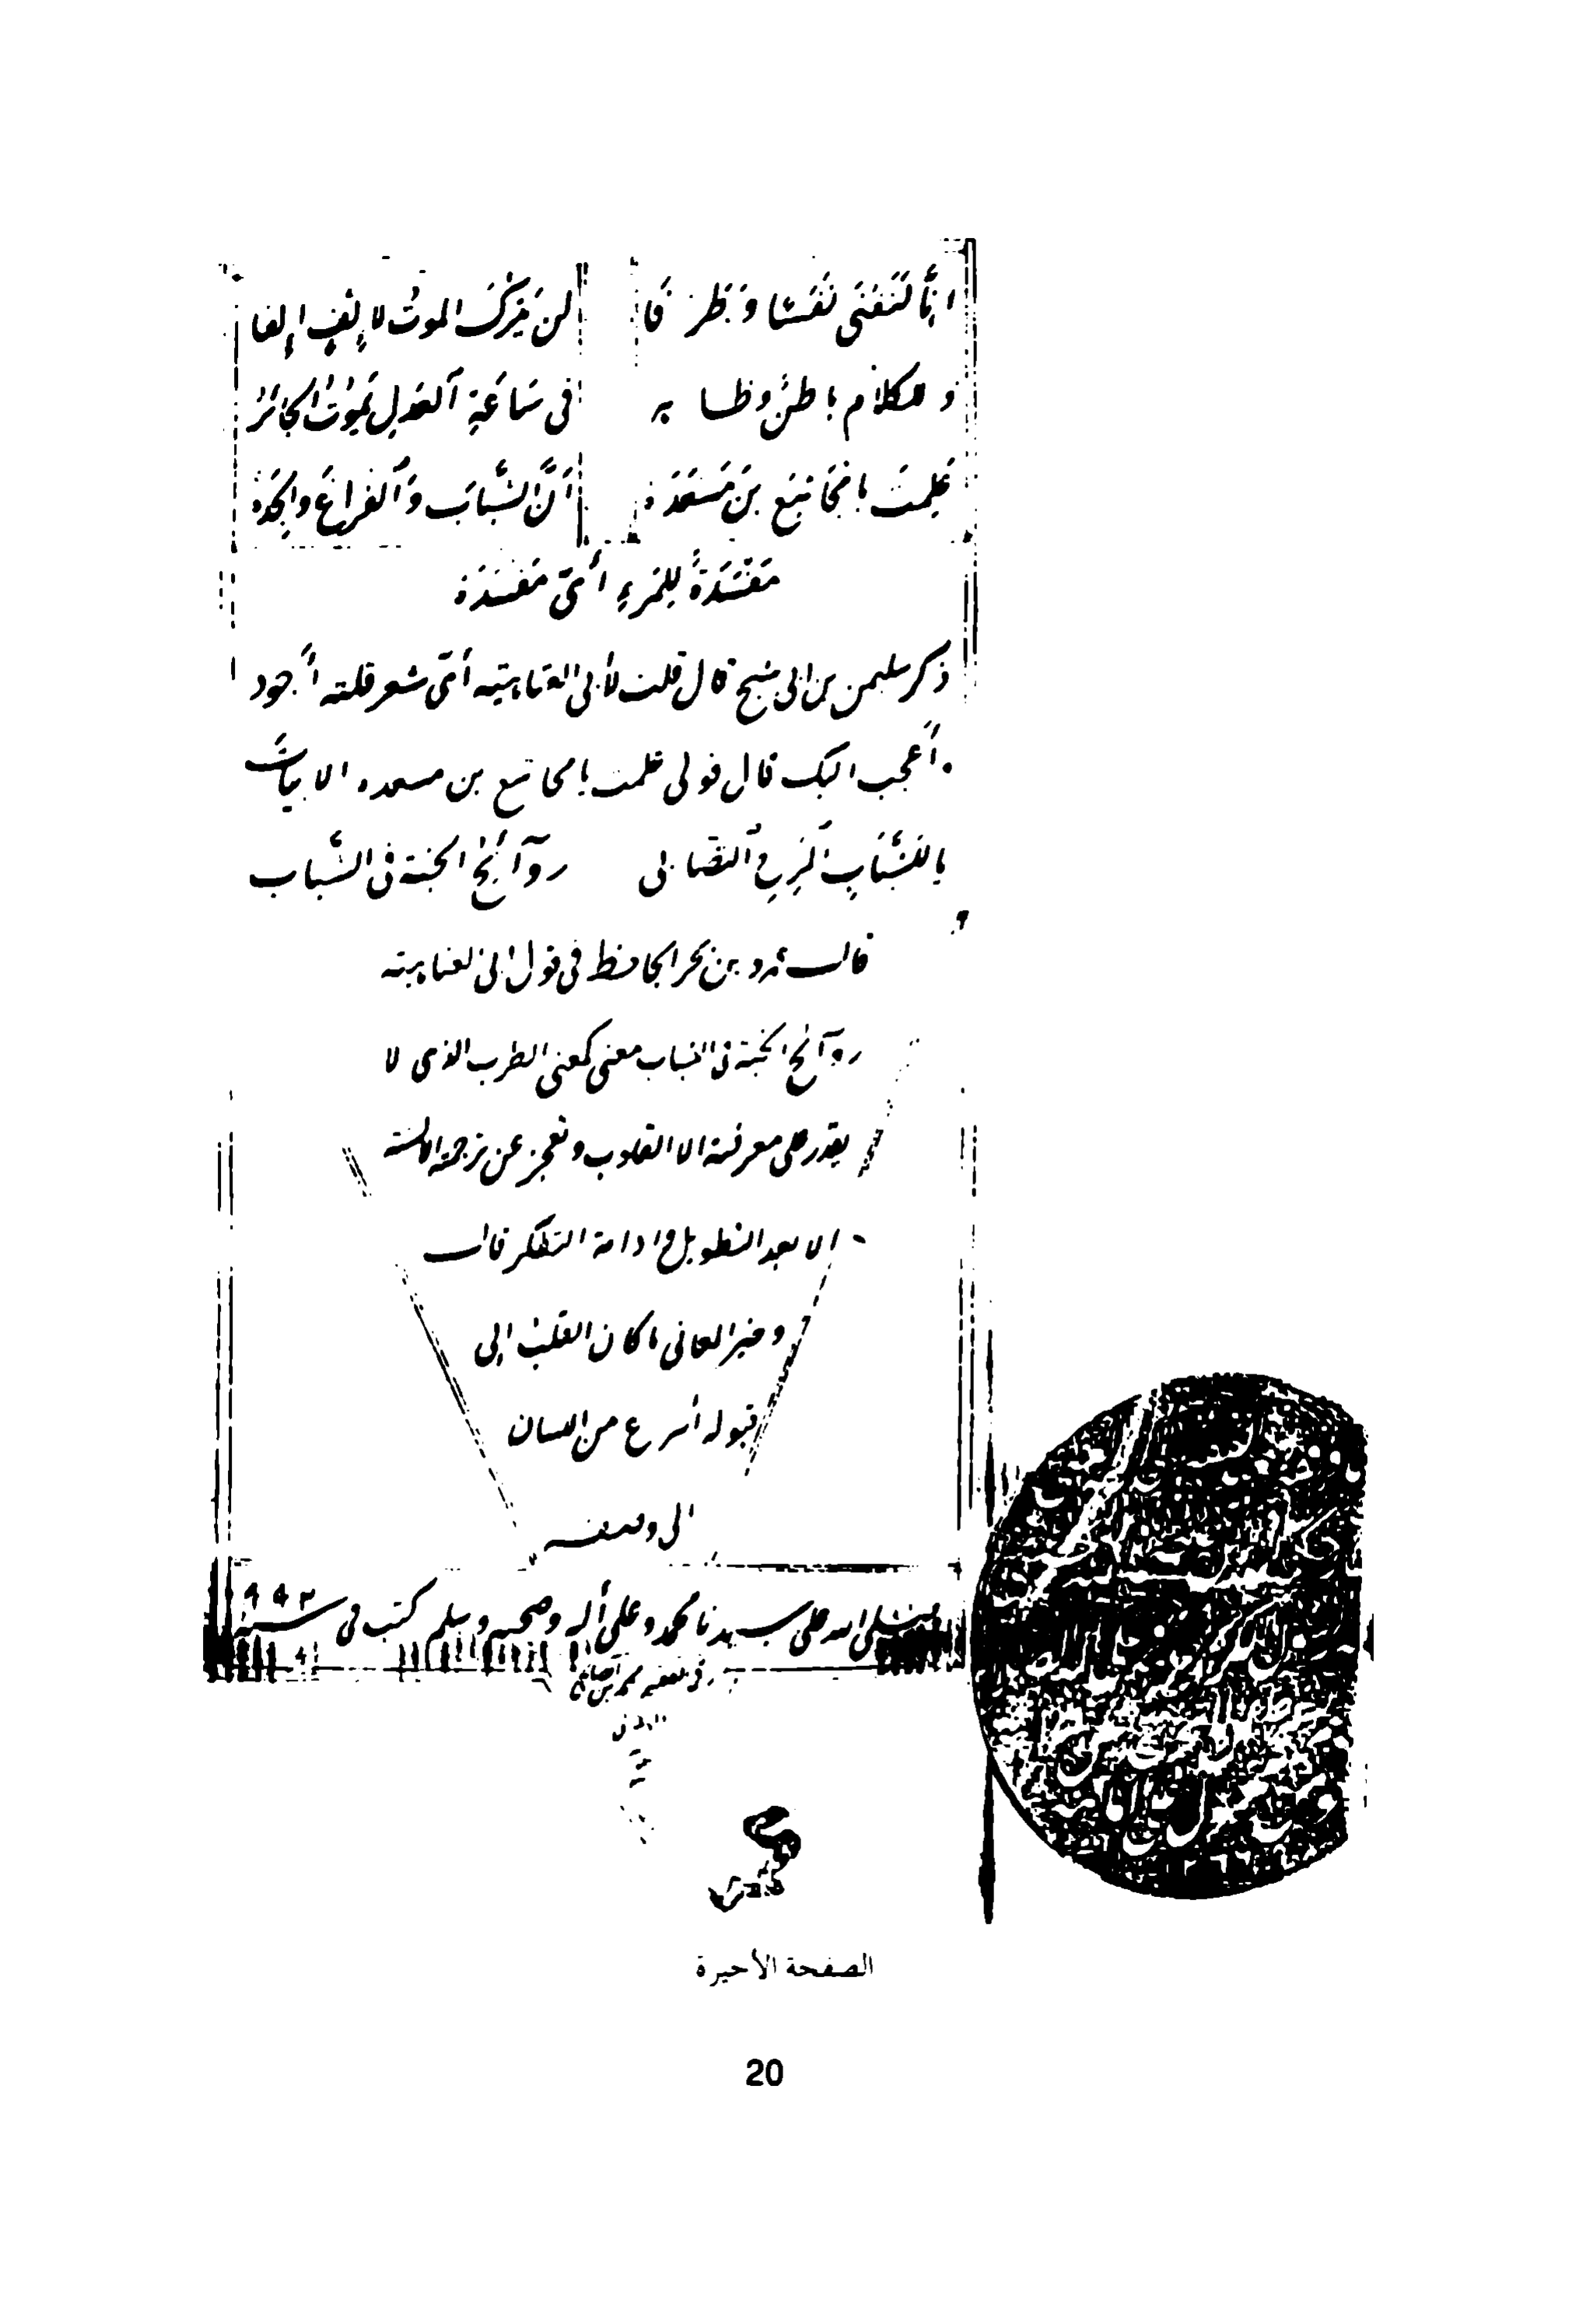 إنا لنفنى نفسا وطرفا لن يترك الموت لإلف إلفا
وللكلام باطن وظاهر في ساعة العدل يموت الجائر
علمت يا مجاشع بن مسعده أن الشباب والفراغ والجده
مفسدة للمرء أي مفسده
ذكر سليمن بن ابي شيخ قال قلت لأبي العتاهيته أي شعر قلته أجود
وأعجب اليك قال قولي علمت يا مجاشع بن مسعده الابيات
يا للشباب المرح التصابي روائح الجنة في الشباب
قال عمرو بن بحر الجاحظ في قول ابي العتاهيته
روائح الجنة في الشباب معنى كمعنى الطرب الذي لا
يقدر على معرفته الا القلوب وتعجز عن ترجمته الالسنة
الا بعد التطويل وادامة التفكر قال
وخير المعاني ما كان القلب إلى
قبوله أسرع من اللسان
الى وصفه
صلى الله على سيدنا محمد وعلى أله وصحبه وسلم كتب في سنة ٩٩٣
الصفحة الأخيرة
20